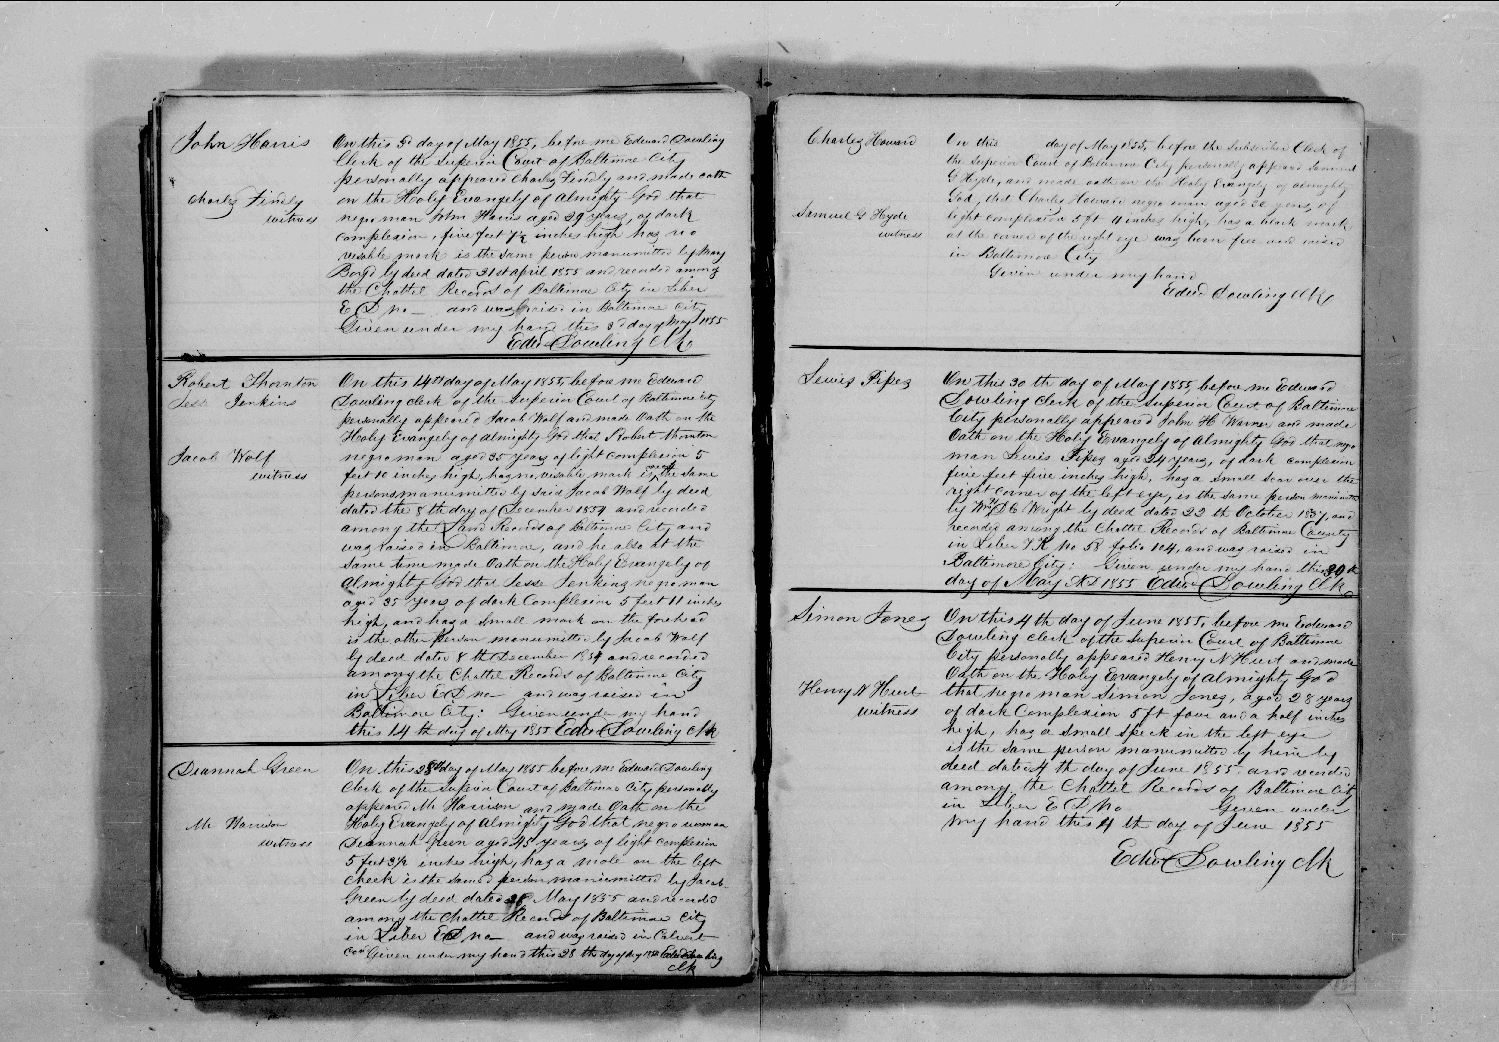 John Harris
Charles Findly
witness
On this 3d day of May 1855, before me Edward Dowling
Clerk of the Superior Court of Baltimore City
personally appeared Charles Findly and made oath
on the Holy Evangely of Almighty God that
negro man John Harris aged 39 years, of dark
complexion, five feet 7½ inches high has no
visable mark is the same person manumitted by Mary
by deed dated 21st april 1855 and recorded among
the Chattel Records of Baltimore City in Liber
E D no — and was raised in Baltimore City
Given under my hand this 3d day of May 1855
Edwd Dowling Clk
Robert Thornton
Jess Jenkins
Jacob Wolf
witness
On this 14th day of May 1855, before me Edward
Dowling clerk of the Superior Court of Baltimore City
personally appeared Jacob Wolf and made Oath on the
Holy Evangely of Almighty God that Robert Thornton
negro man aged 35 years of light complexion 5
feet 10 inches high, has no visable mark is one of the same
persons manumitted by said Jacob Wolf by deed
dated the 8th day of December 1854 and recorded
among the Land Records of Baltimore City and
was raised in Baltimore, and he also at the
same time made Oath on the Holy Evangely of
Almighty God that Jesse Jenkins negro man
aged 35 years of dark Complexion 5 feet 11 inches
high, and has a small mark on the forehead
is the other person manumitted by Jacob Wolf
by deed dated 8th December 1854 and recorded
among the Chattel Records of Baltimore City
in Liber E D no — and was raised in
Baltimore City: Given under my hand
this 14th day of May 1855 Edwd Dowling Clk
Diannah Green
Mr Harrison
witness
On this 28th day of May 1855 before me Edward Dowling
Clerk of the Superior Court of Baltimore City personally
appeared Mr Harrison and made Oath on the
Holy Evangely of Almighty God that negro woman
Diannah Green aged 45 years of light complexion
5 feet 3½ inches high, has a mole on the left
cheek is the same person manumitted by Jacob
Green by deed dated 28 May 1855 and recorded
among the Chattel Records of Baltimore City
in Liber E D no — and was raised in Calvert
Co Given under my hand this 28th day of May 1855 Edwd Dowling
Clk
Charles Howard
Samuel G Hyde
witness
On this day of May 1855, before the Subscriber Clerk of
the Superior Court of Baltimore City personally appeared Samuel
G Hyde, and made oath on the Holy Evangely of almighty
God, that Charles Howard negro man aged years, of
light complexion 5 ft 11 inches high, has a black mark
at the corner of the right eye was born free and raised
in Baltimore City
Given under my hand
Edwd Dowling Clk
Lewis Pipes
On this 30th day of May 1855 before me Edward
Dowling clerk of the Superior Court of Baltimore
City personally appeared John H Warner and made
Oath on the Holy Evangely of Almighty God that negro
man Lewis Pipes aged 34 years, of dark complexion
five feet five inches high, has a small scar over the
right corner of the left eye, is the same person manumitted
by Wm H D C Wright by deed dated 22th October 1837, and
recorded among the Chattel Records of Baltimore County
in Liber T K No 58 folio 104, and was raised in
Baltimore City: Given under my hand this 30th
day of May AD 1855 Edwd Dowling Clk
Simon Jones
Henry N Hurt
witness
On this 4th day of June 1855, before me Edward
Dowling clerk of the Superior Court of Baltimore
City personally appeared Henry N Hurt and made
Oath on the Holy Evangely of Almighty God
that negro man Simon Jones, aged 28 years
of dark Complexion 5 ft four and a half inches
high, has a small speck in the left eye
is the same person manumitted by him by
deed dated 4th day of June 1855 and recorded
among the Chattel Records of Baltimore City
in Liber E D No Given under
my hand this 4th day of June 1855
Edwd Dowling Clk